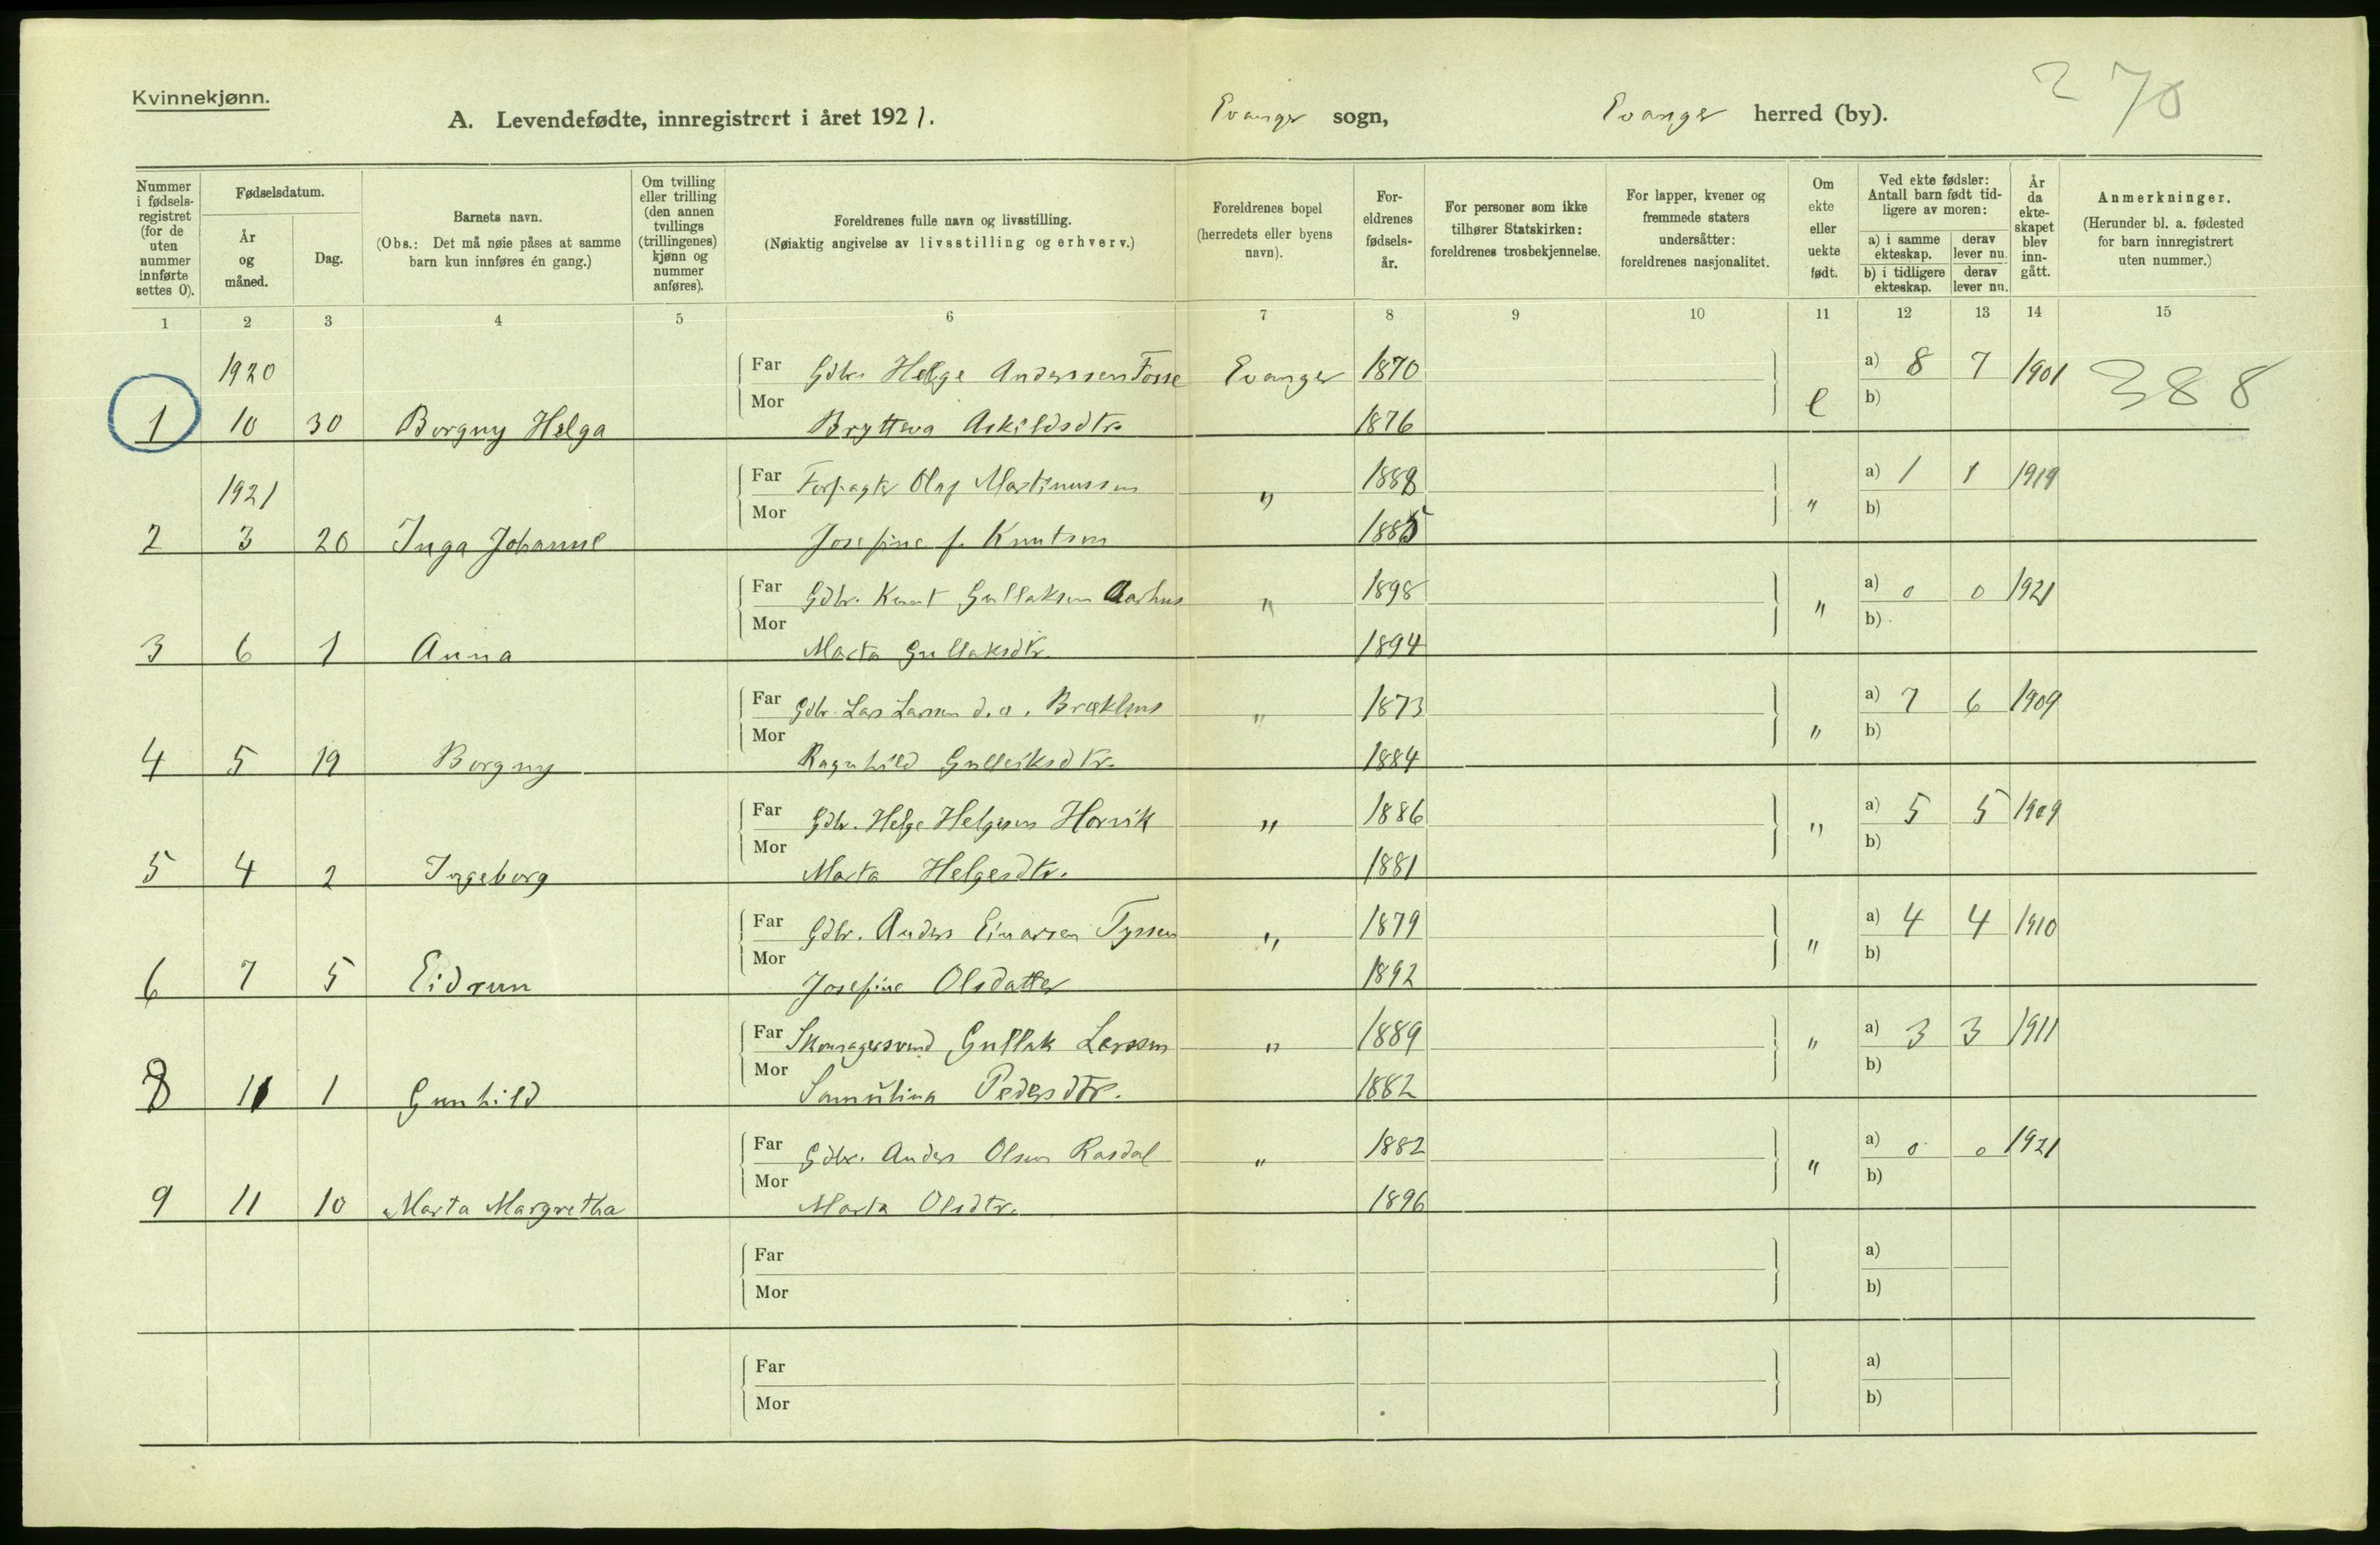 Kvinnekjønn.
2 70
A. Levendefødte, innregistrert i året 1921. Evanger sogn, Evanger herred (by).
Nummer i fødsels-registret (for de uten nummer innførte settes 0).
Fødselsdatum.
År og måned.
Dag.
Barnets navn.
(Obs.: Det må nøie påses at samme barn kun innføres én gang.)
Om tvilling eller trilling (den annen tvillings (trillingenes) kjønn og nummer anføres).
Foreldrenes fulle navn og livsstilling.
(Nøiaktig angivelse av livsstilling og erhverv.)
Foreldrenes bopel (herredets eller byens navn).
For-eldrenes fødsels-år.
For personer som ikke tilhører Statskirken: foreldrenes trosbekjennelse.
For lapper, kvener og fremmede staters undersåtter: foreldrenes nasjonalitet.
Om ekte eller uekte født.
Ved ekte fødsler: Antall barn født tid-ligere av moren:
a) i samme ekteskap. derav lever nu.
b) i tidligere ekteskap. derav lever nu.
År da ekte-skapet blev inn-gått.
Anmerkninger.
(Herunder bl. a. fødested for barn innregistrert uten nummer.)
1 2 3 4 5 6 7 8 9 10 11 12 13 14 15
1920 Far Gdbr. Helge Anderssen Fosse Evanger 1870 a) 8 7 1901 388
1 10 30 Borgny Helga Mor Brytteva Askildsdtr. 1876 e b)
1921 Far Forpagter Olaf Martinussen " 1888 a) 1 1 1919
2 3 20 Inga Johanne Mor Josefine f. Knutsen 1885 " b)
Far Gdbr. Knut Gullaksen Aarhus " 1898 a) 0 0 1921
3 6 1 Anna Mor Marta Gullaksdtr. 1894 " b)
Far Gdbr. Lars Larsen d.a. Brækhus " 1873 a) 7 6 1909
4 5 19 Borgny Mor Ragnhild Gulleiksdtr. 1884 " b)
Far Gdbr. Helge Helgesen Horvik " 1886 a) 5 5 1909
5 4 2 Ingeborg Mor Marta Helgesdtr. 1881 " b)
Far Gdbr. Anders Einarsen Tyssen " 1879 a) 4 4 1910
6 7 5 Eidrun Mor Josefine Olsdatter 1892 " b)
Far Skomagersvend Gullak Larssen " 1889 a) 3 3 1911
8 11 1 Gunhild Mor Samuline Pedersdtr. 1882 " b)
Far Gdbr. Anders Olsen Rasdal " 1882 a) 0 0 1921
9 11 10 Marta Margretha Mor Marta Olsdtr. 1896 " b)
Far a)
Mor b)
Far a)
Mor b)